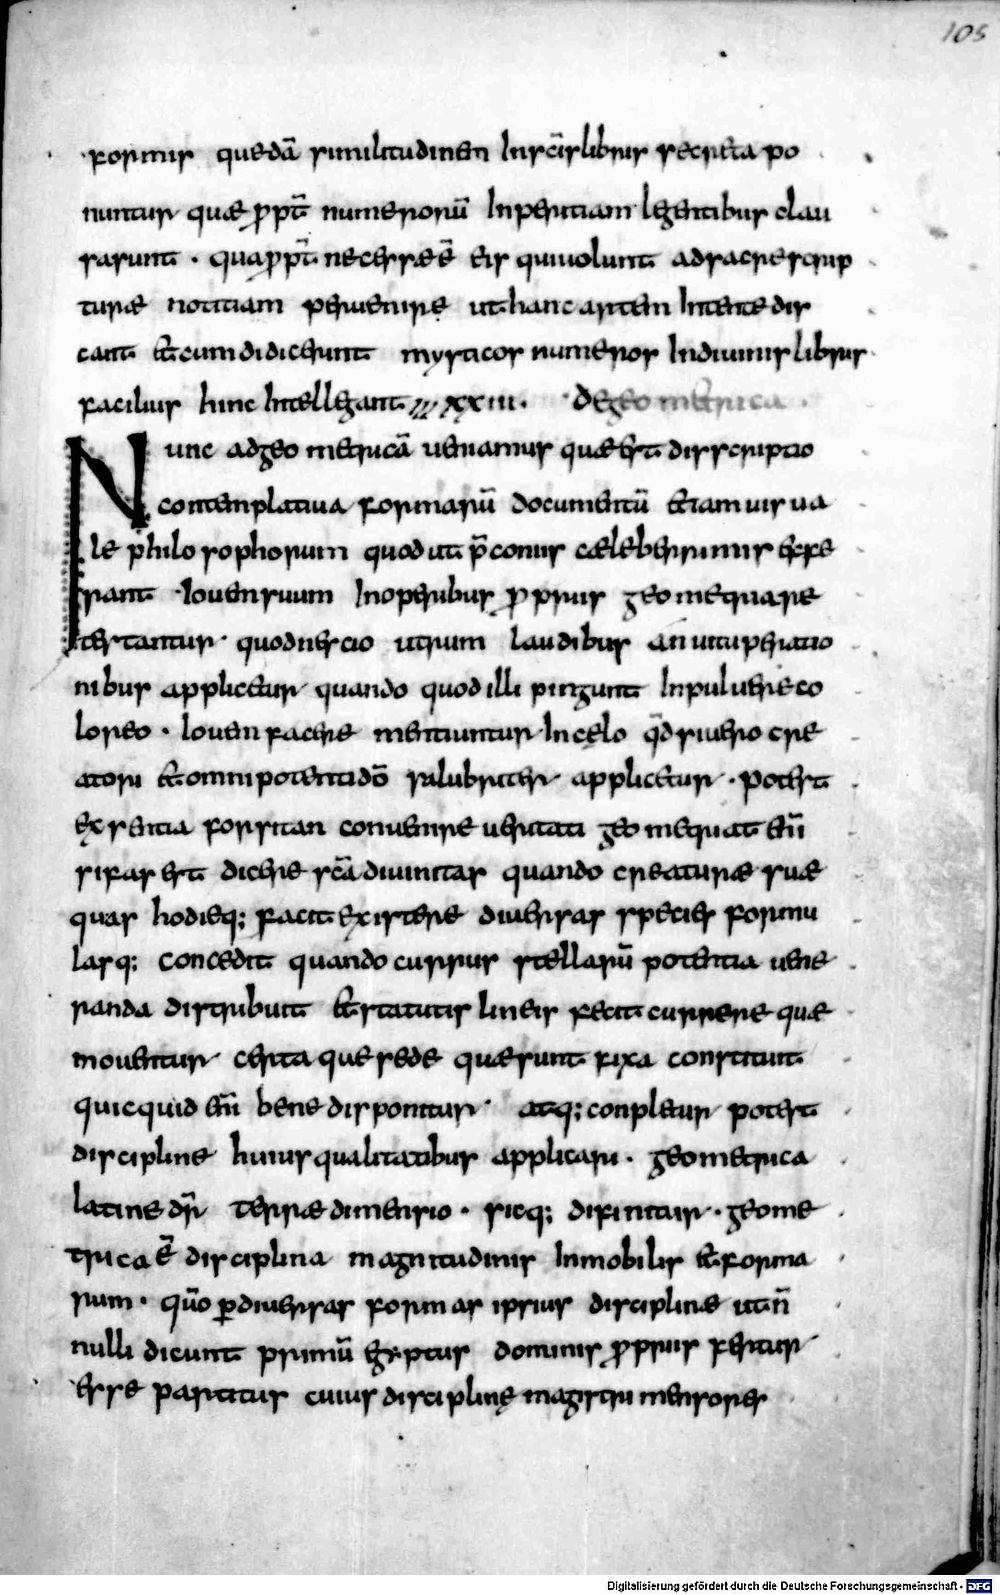 105
formis quedā similitudinen Inscīs libris secreta po
nuntur quae ꝓpt̄ numerorū Inperitiam legentibus clau
sa sunt · quaꝓpt̄ necesse ē eis quiuolunt adsacrescrip
turae notitiam peruenire uthanc artem Intente dis
cant &cum didicerunt mysticos numeros Indiuinis libris
facilius hinc Intellegant XXIII. Degeometrica
Nunc adgeometricā ueniamus quae est disscriptio
contemplatiua formarū documentū &iam uisua
le philosophorum quodut p̄conis caeleberrimis effe
rant Iouem suum Inoperibus ꝓpriis geometriare
testantur quodnescio utrum laudibus an uituperatio
nibus applicetur quando quod illi pingunt Inpuluere co
loreo · Iouem facere mentiuntur Incęlo qđ siuero cre
atori &omnipotentidō salubriter applicetur · potest
ex sentia forsitan conuenire ueritati geometriat eni̅
si fas est dicere scā diuinitas quando creaturae suae
quas hodieq; facit existere diuersas species formu
lasq; concedit quando cursus stellarū potentia uene
randa distribuit &statutis lineis fecit currere quae
mouentur certa que sede quae sunt fixa constituit
quicquid eni̅ bene disponitur atq; conpletur potest
discipline huius qualitatibus applicari · geometrica
latine dr̄ terrae dimensio · sicq; difinitur · geome
trica ē disciplina magnitudinis Inmobilis &forma
rum · quō ꝑdiuersas formas ipsius disciplinae ut nn̄
nulli dicunt primū egyptus dominis ꝓpriis fertur
esse partitus cuius disciplinę magistri mensores
Digitalisierung gefördert durch die Deutsche Forschungsgemeinschaft - DFG